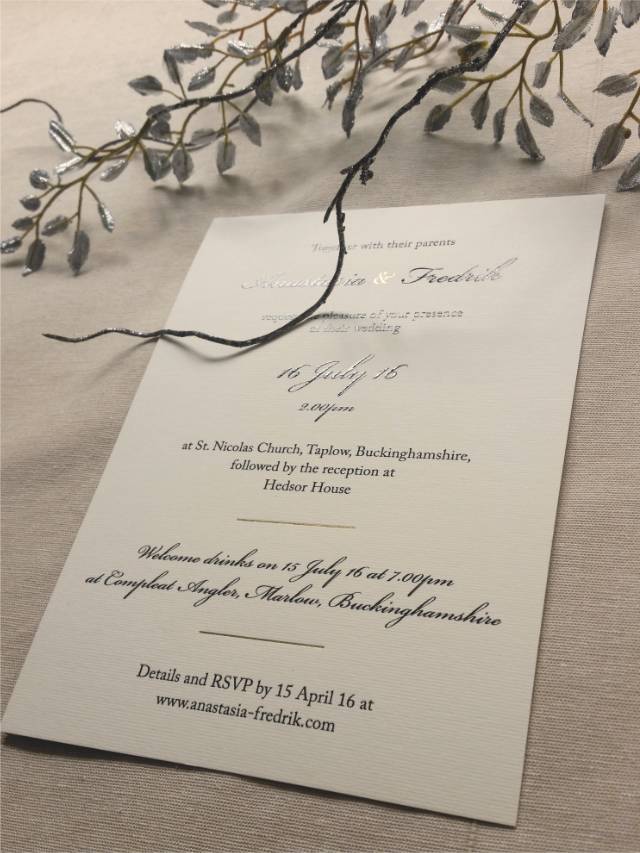 Together with their parents
Anastasia & Fredrik
request the pleasure of your presence
at their wedding
16 July 16
2.00pm
at St. Nicolas Church, Taplow, Buckinghamshire,
followed by the reception at
Hedsor House
Welcome drinks on 15 July 16 at 7.00pm
at Compleat Angler, Marlow, Buckinghamshire
Details and RSVP by 15 April 16 at
www.anastasia-fredrik.com